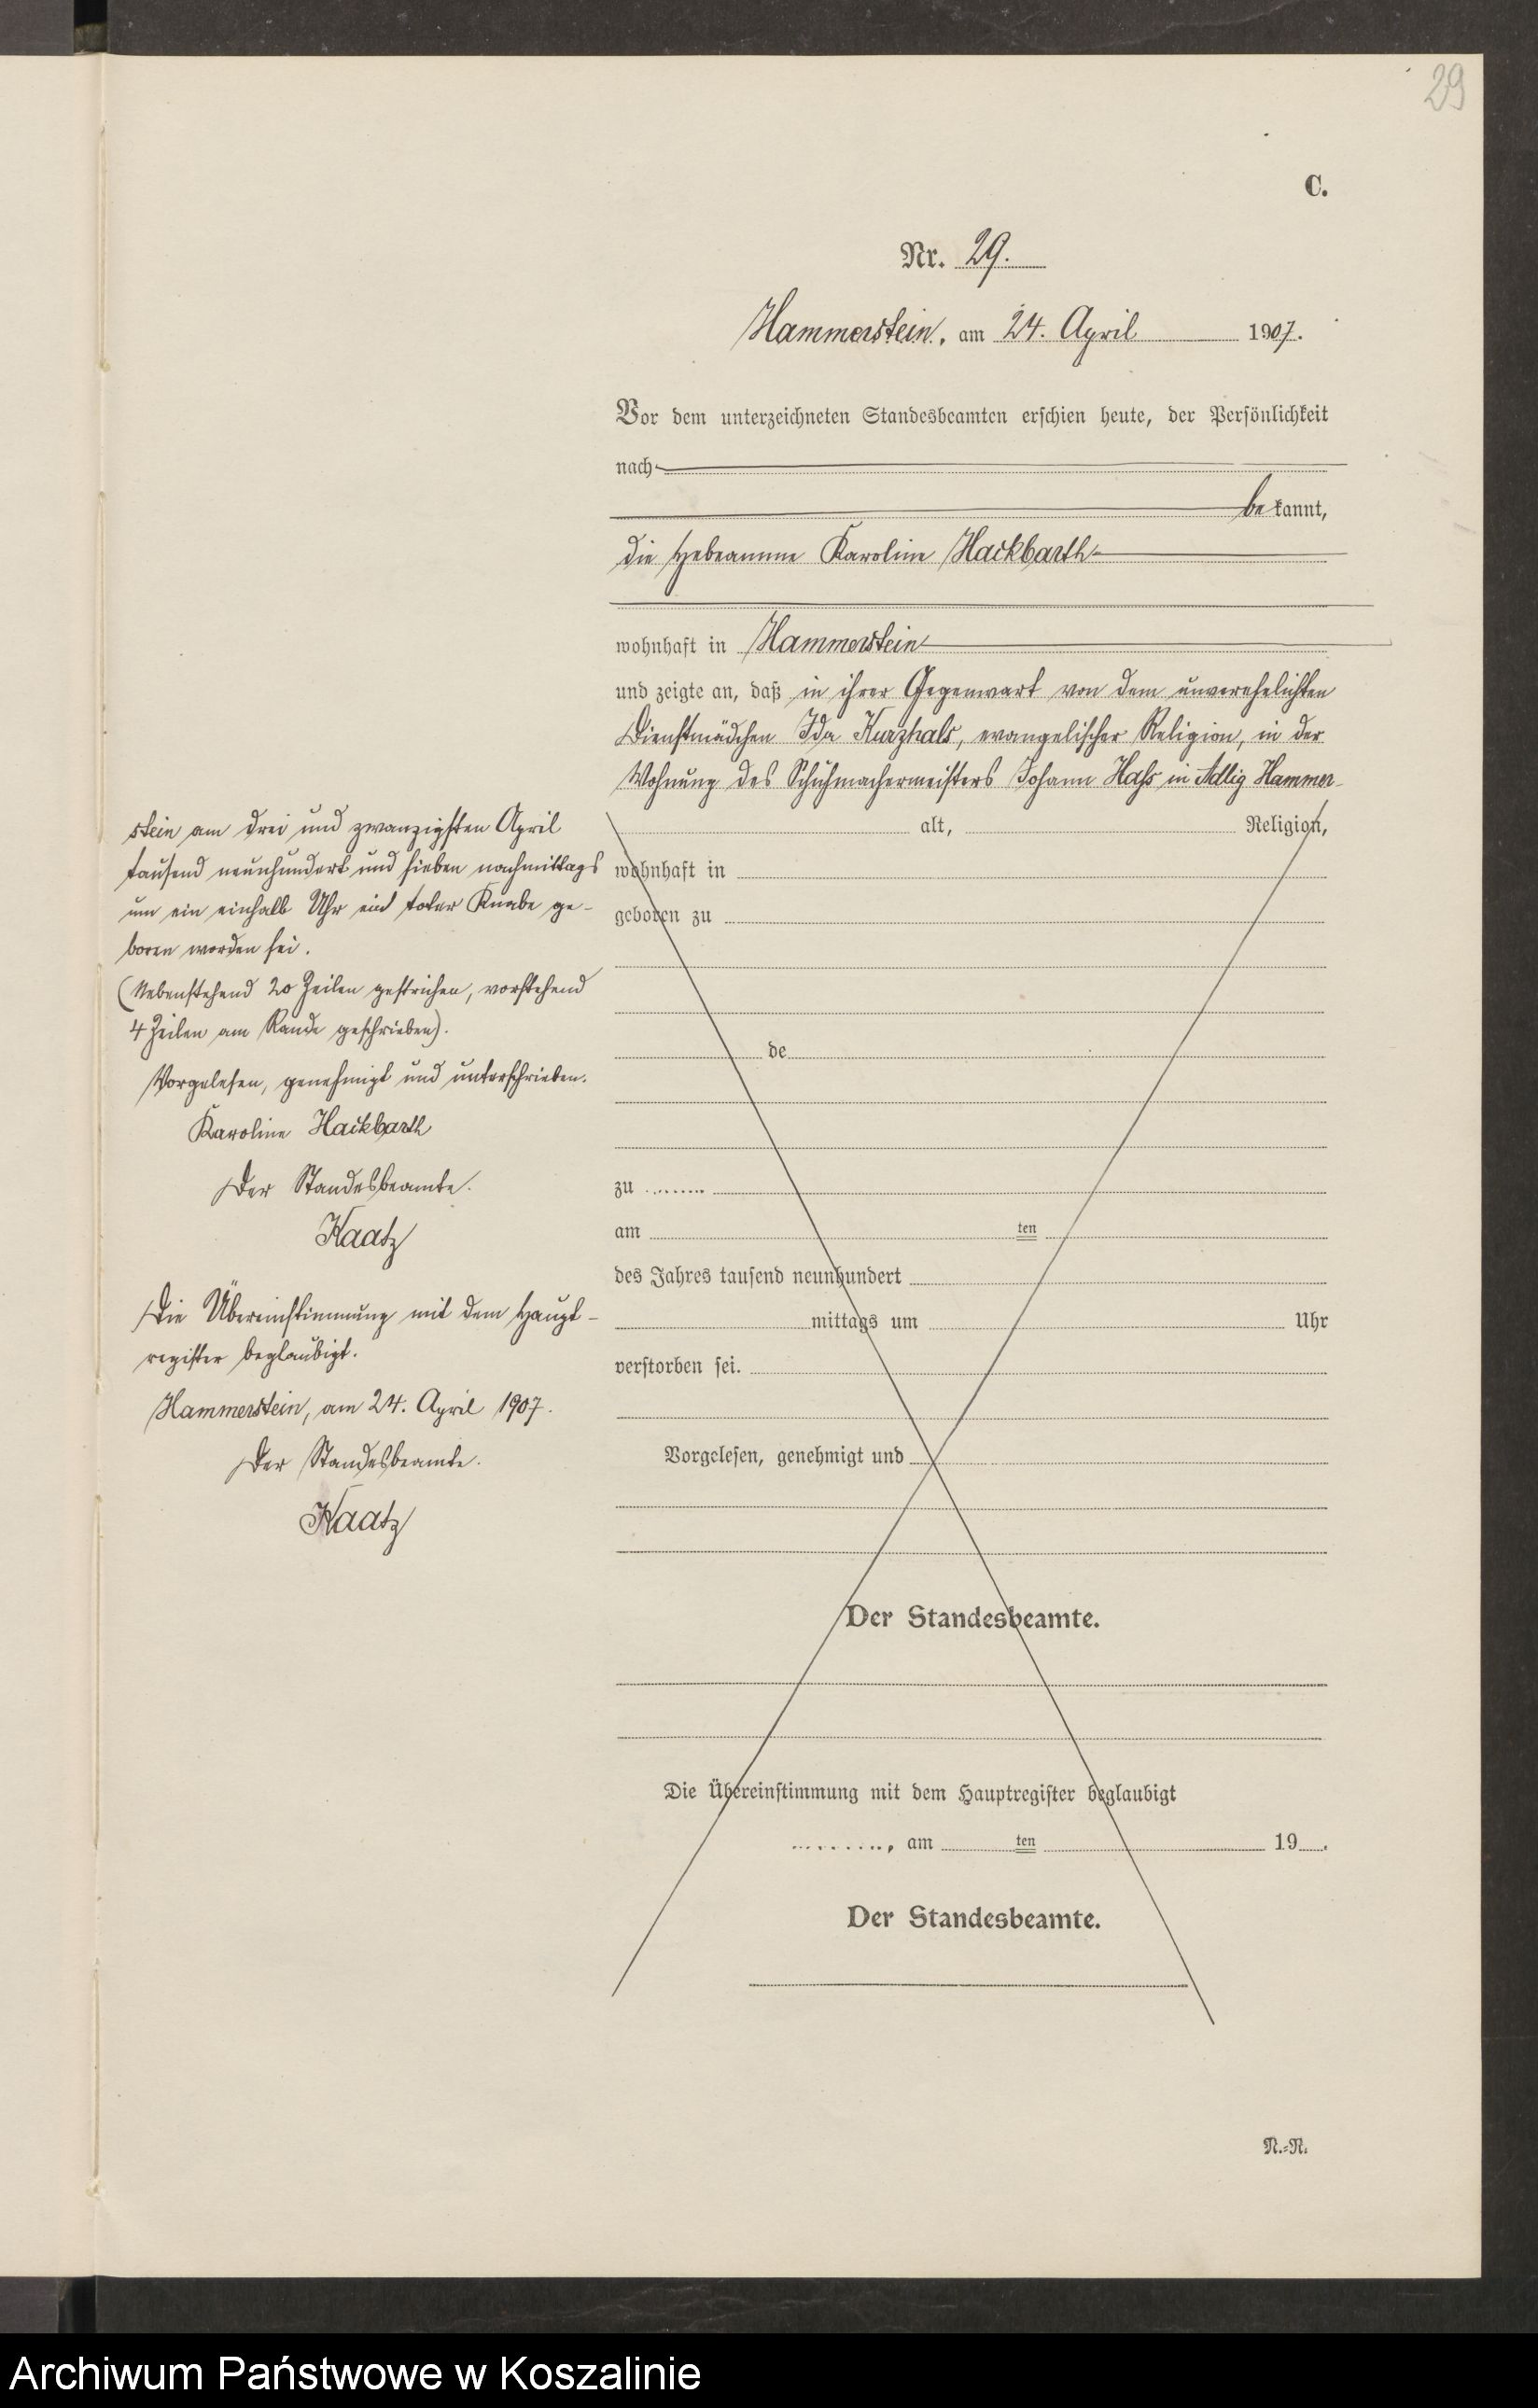 29
C.
Nr. 29.
Hammerstein, am 24. April 1907.
Vor dem unterzeichneten Standesbeamten erschien heute, der Persönlichkeit
nach
bekannt,
die Hebeamme Karoline Hackbarth
wohnhaft in Hammerstein
und zeigte an, daß in ihrer Gegenwart von dem unverehelichten
Dienstmädchen Ida Kurzhals, evangelischer Religion, in der
Wohnung des Schuhmachermeisters Johann Hass in Adlig Hammer-
stein am drei und zwanzigsten April
tausend neunhundert und sieben nachmittags
um ein einhalb Uhr ein toter Knabe ge-
boren worden sei.
(Nebenstehend 20 Zeilen gestrichen, vorstehend
4 Zeilen am Rande geschrieben).
Vorgelesen, genehmigt und unterschrieben.
Karoline Hackbarth
Der Standesbeamte.
Kaatz
Die Übereinstimmung mit dem Haupt-
register beglaubigt.
Hammerstein, am 24. April 1907.
Der Standesbeamte.
Kaatz
alt, Religion,
wohnhaft in
geboren zu
de
zu
am ten
des Jahres tausend neunhundert
mittags um Uhr
verstorben sei.
Vorgelesen, genehmigt und
Der Standesbeamte.
Die Übereinstimmung mit dem Hauptregister beglaubigt
, am ten 19 .
Der Standesbeamte.
N.-R.
Archiwum Państwowe w Koszalinie